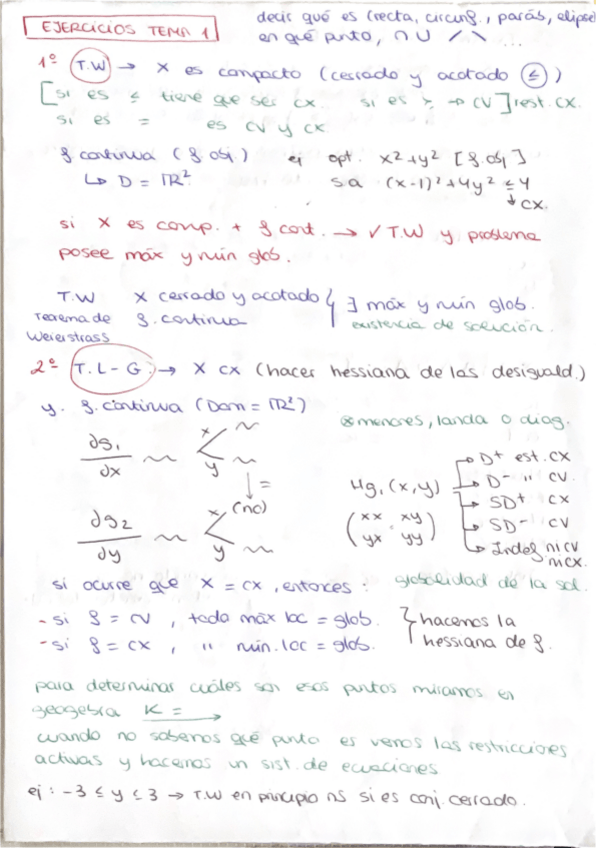 EJERCICIOS TEMA 1
decir qué es (recta, circunf., paráb, elipse)
en qué punto, ∩ ∪ / \ ...
1º (T.W) → X es compacto (cerrado y acotado ≤)
[si es ≤ tiene que ser cx. si es ≥ → CV] rest. cx.
si es = es CV y cx
f continua (f. obj.) ej opt. x2+y2 [f. obj]
↳ D = ℝ² s.a (x-1)²+4y² ≤ 4
↓ cx.
si X es comp. + f cont. → ✓ T.W y problema
posee máx y mín glob.
T.W X cerrado y acotado } ∃ máx y mín glob.
Teorema de f. continua existencia de solución.
Weierstrass
2º (T. L-G.) → X cx (hacer hessiana de las desiguald.)
y. f. continua (Dom = ℝ²)
* menores, landa o diag.
∂g₁
∂x
x
y
=
Hg₁ (x,y)
(xx xy
yx yy)
D+ est. cx
D- " cv.
SD+ cx
SD- cv
Indef ni cv
ni cx.
∂g₂
∂y
x (no)
y
si ocurre que X = cx, entonces: globalidad de la sol.
- si f = cv, todo máx loc = glob. } hacemos la
- si f = cx, " mín. loc = glob. hessiana de f.
para determinar cuáles son esos puntos miramos en
geogebra K = →
cuando no sabemos qué punto es vemos las restricciones
activas y hacemos un sist. de ecuaciones
ej: -3 ≤ y ≤ 3 → T.W en principio ns si es conj. cerrado.